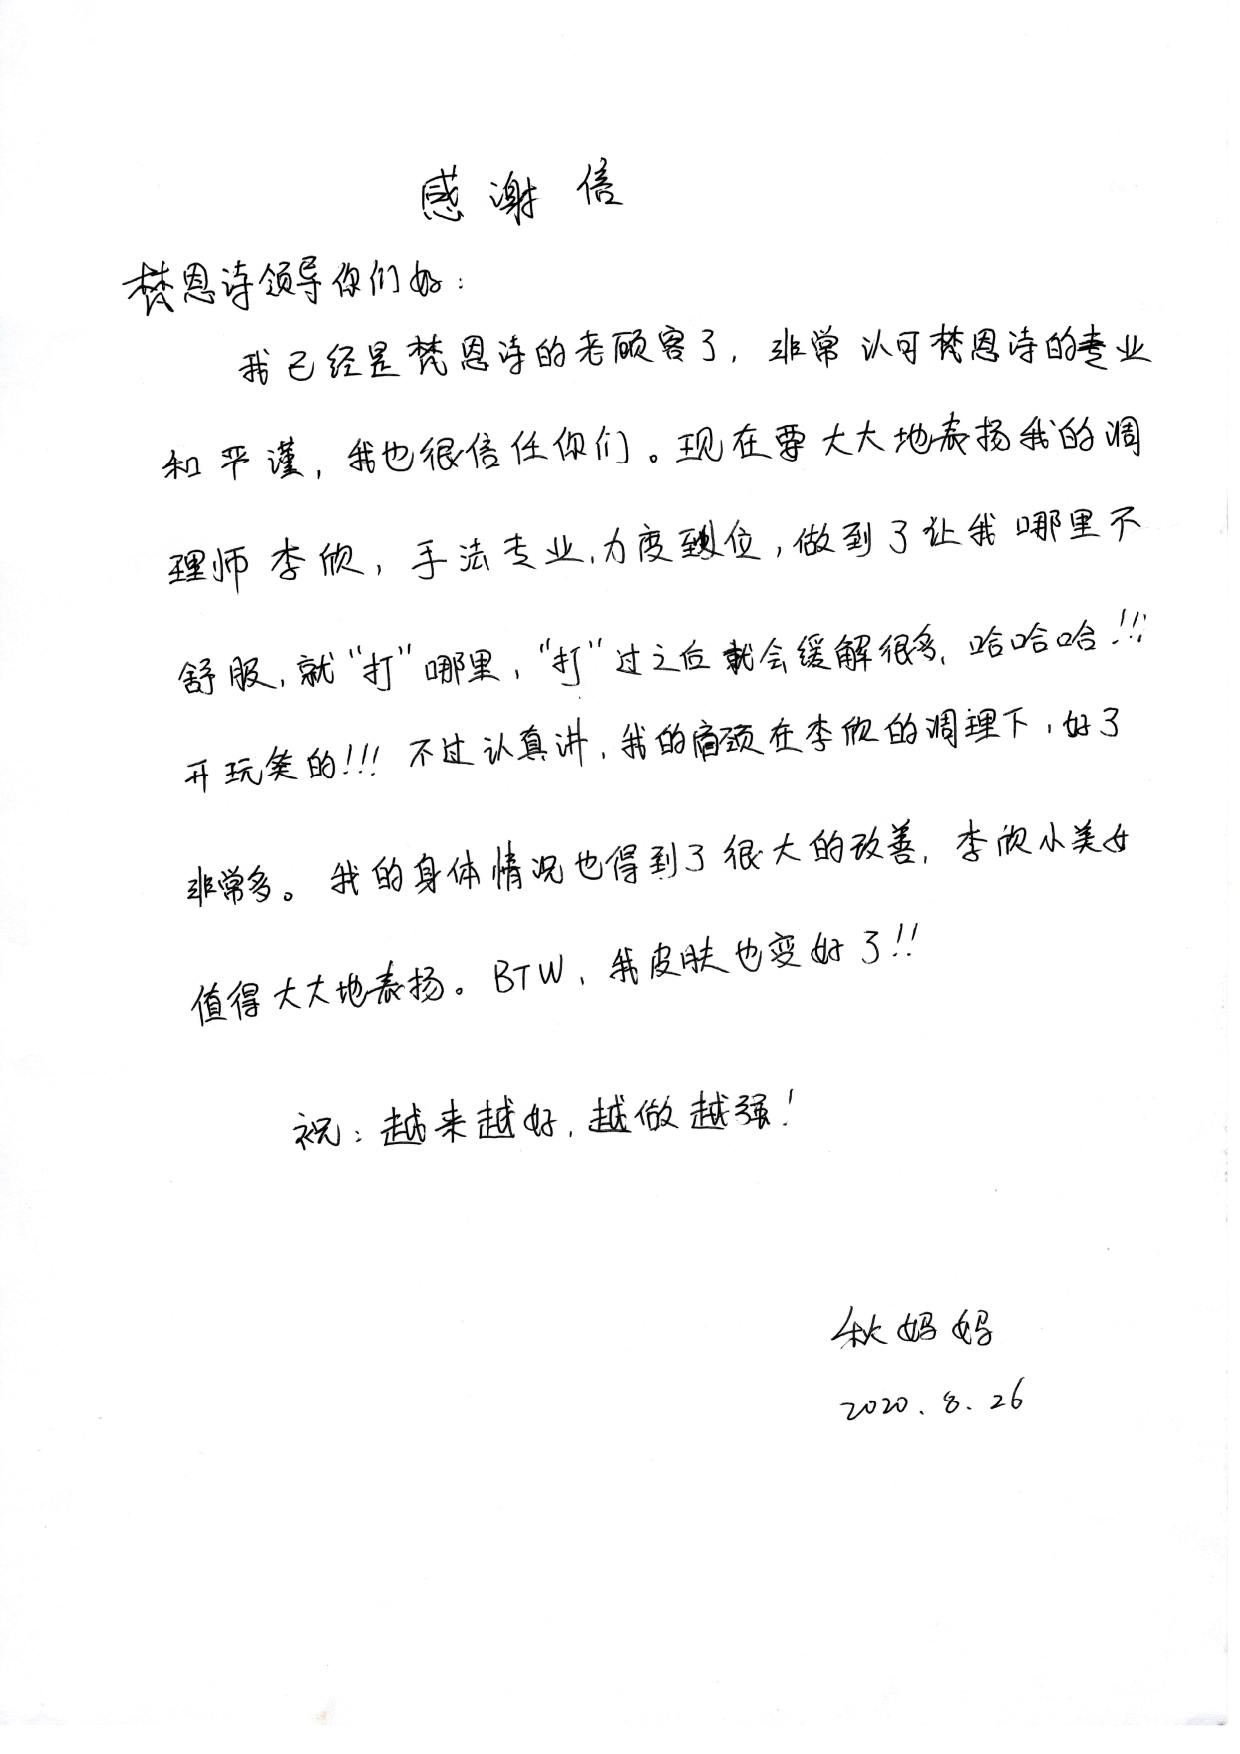 感谢信
梵恩诗领导你们好：
我已经是梵恩诗的老顾客了，非常认可梵恩诗的专业
和严谨，我也很信任你们。现在要大大地表扬我的调
理师李欣，手法专业，力度到位，做到了让我哪里不
舒服，就“打”哪里，“打”过之后就会缓解很多，哈哈哈!!!
开玩笑的!!! 不过认真讲，我的肩颈在李欣的调理下，好了
非常多。我的身体情况也得到了很大的改善，李欣小美女
值得大大地表扬。BTW，我皮肤也变好了!!
祝：越来越好，越做越强！
秋妈妈
2020.8.26